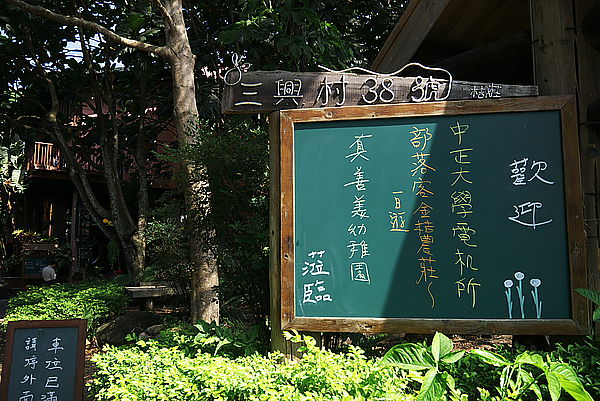 三興村38號 桔莊
歡迎
中正大學電機所
部落客金桔農莊~
一日遊
真善美幼稚園
蒞臨
車位已滿
請停外面